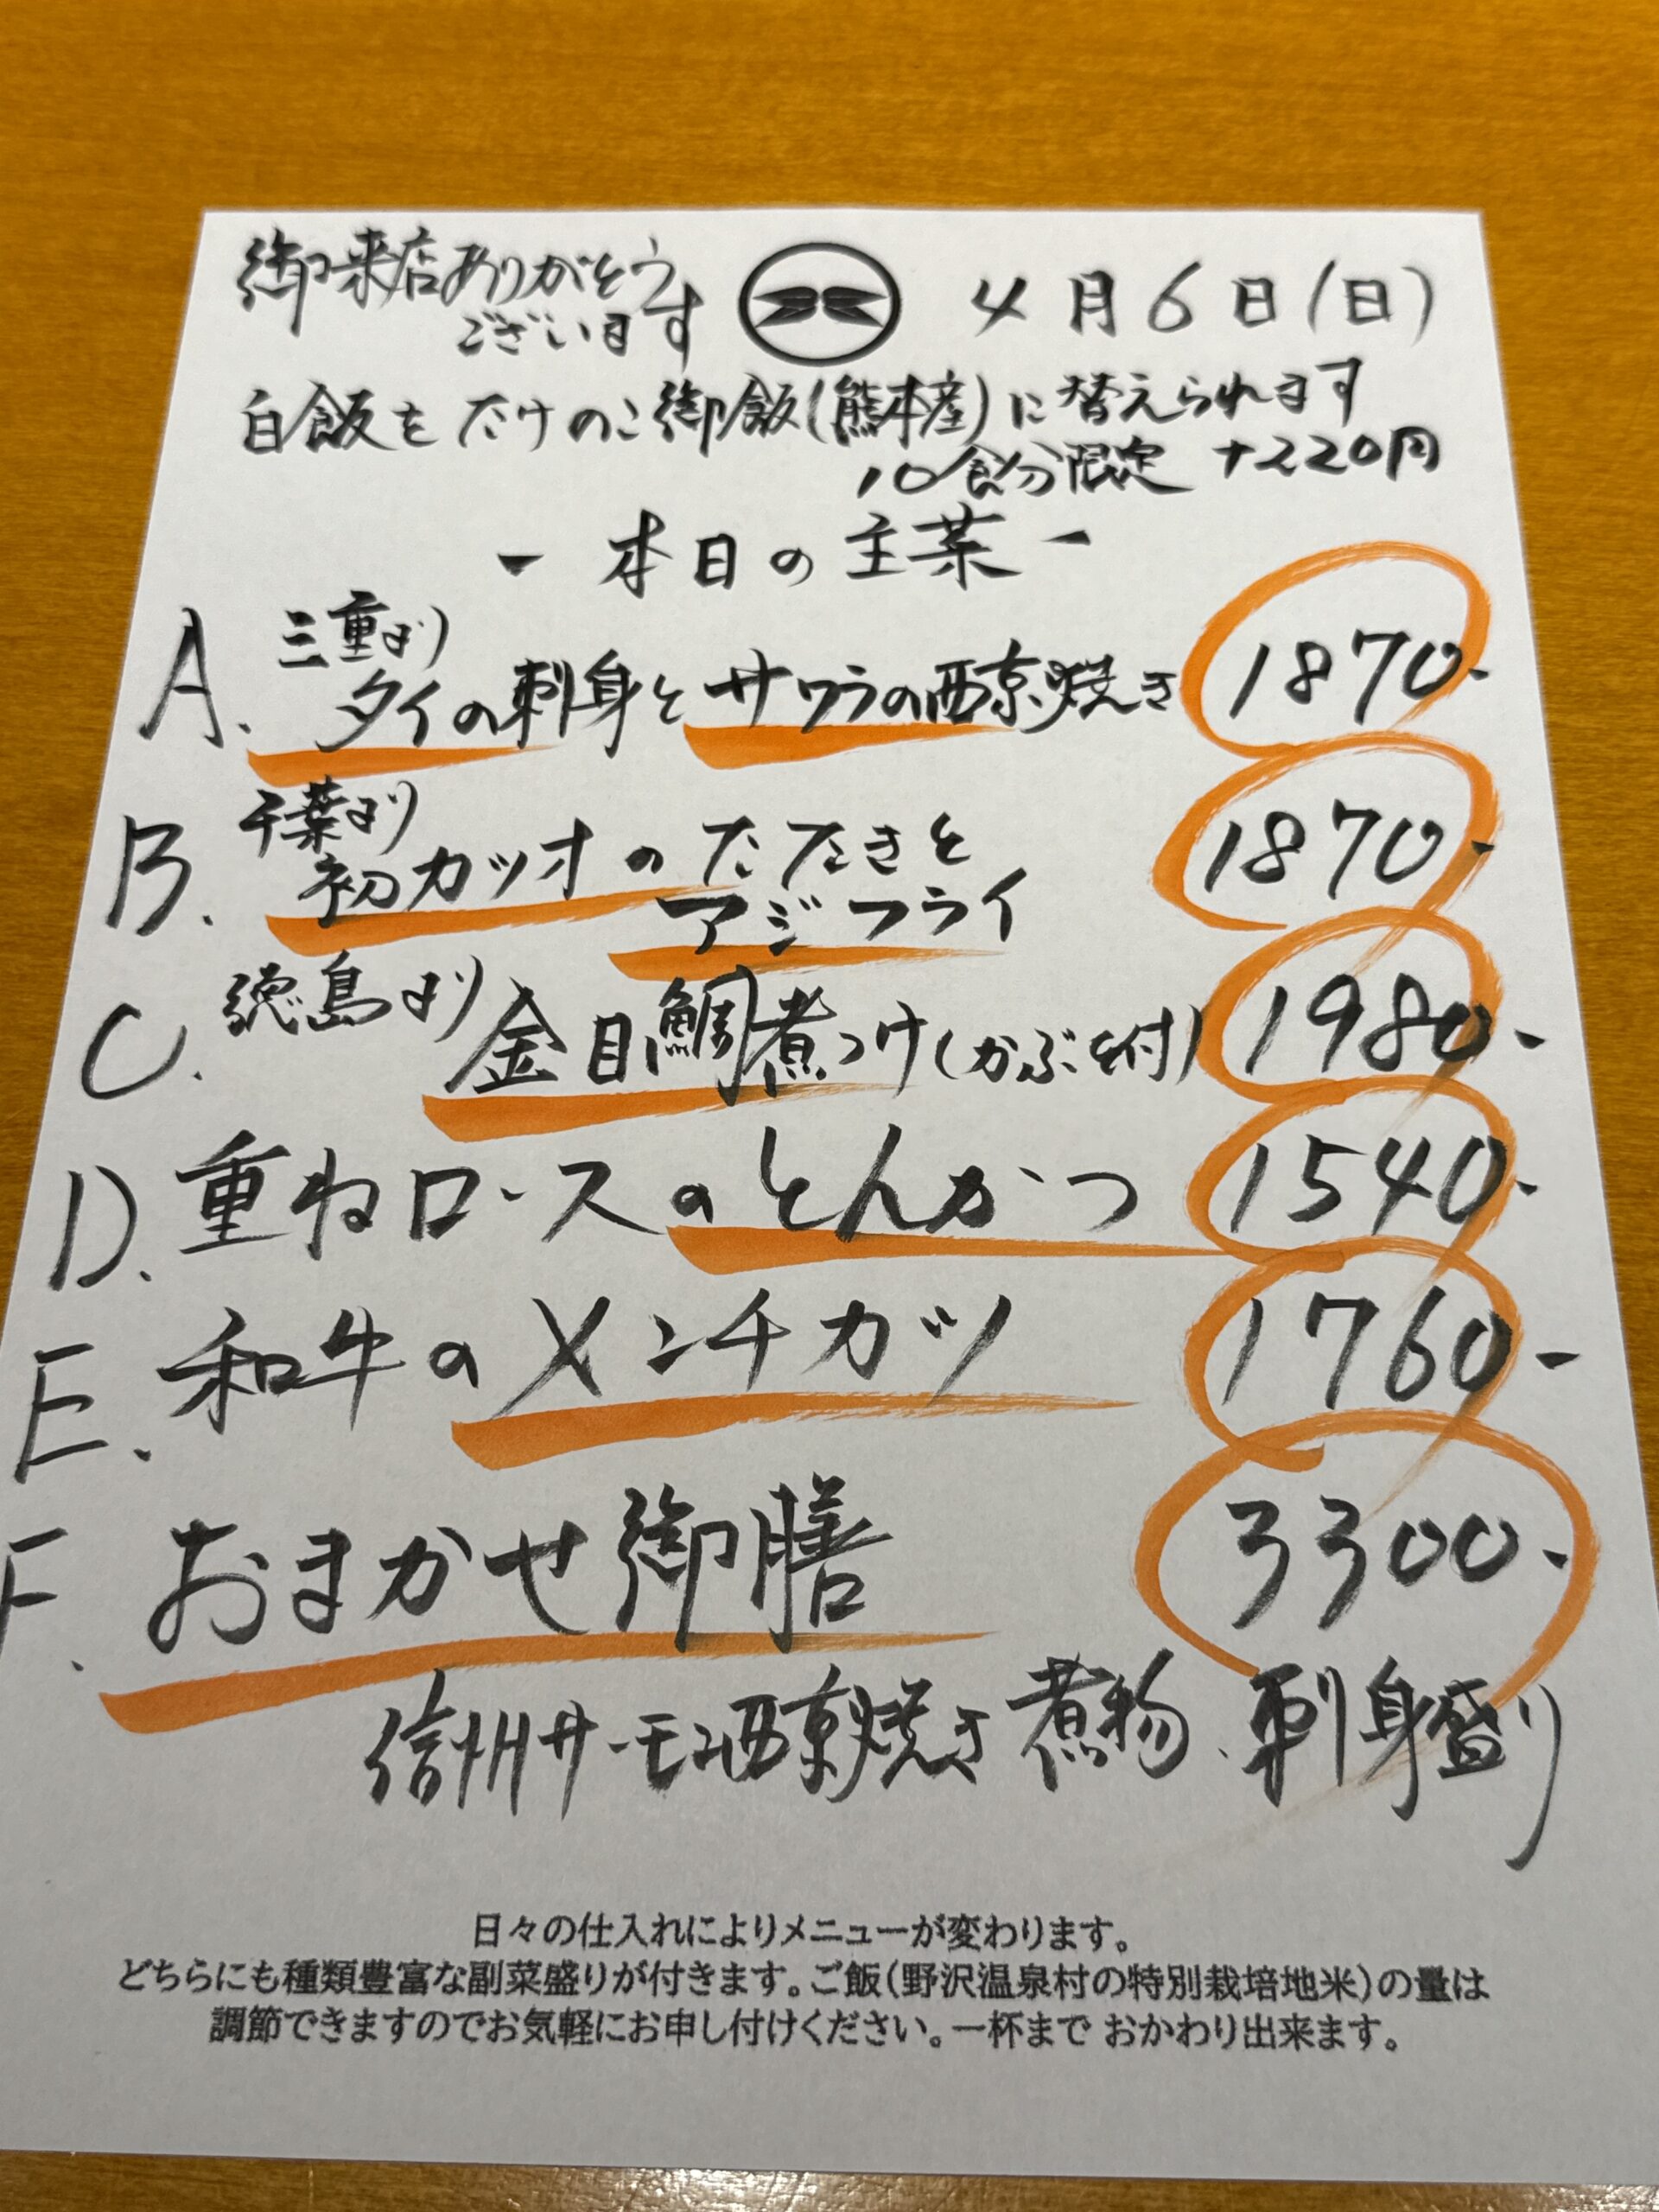 御来店ありがとう
ございます
4月6日(日)
白飯をたけのこ御飯(熊本産)に替えられます
10食分限定 +220円
- 本日の主菜 -
A. 三重より
タイの刺身とサワラの西京焼き 1870-
B. 千葉より
初カツオのたたきと 1870-
アジフライ
C. 徳島より 金目鯛煮つけ(かぶと付) 1980-
D. 重ねロースのとんかつ 1540-
E. 和牛のメンチカツ 1760-
F. おまかせ御膳 3300-
信州サーモン西京焼き 煮物、刺身盛り
日々の仕入れによりメニューが変わります。
どちらにも種類豊富な副菜盛りが付きます。ご飯(野沢温泉村の特別栽培地米)の量は
調節できますのでお気軽にお申し付けください。一杯まで おかわり出来ます。